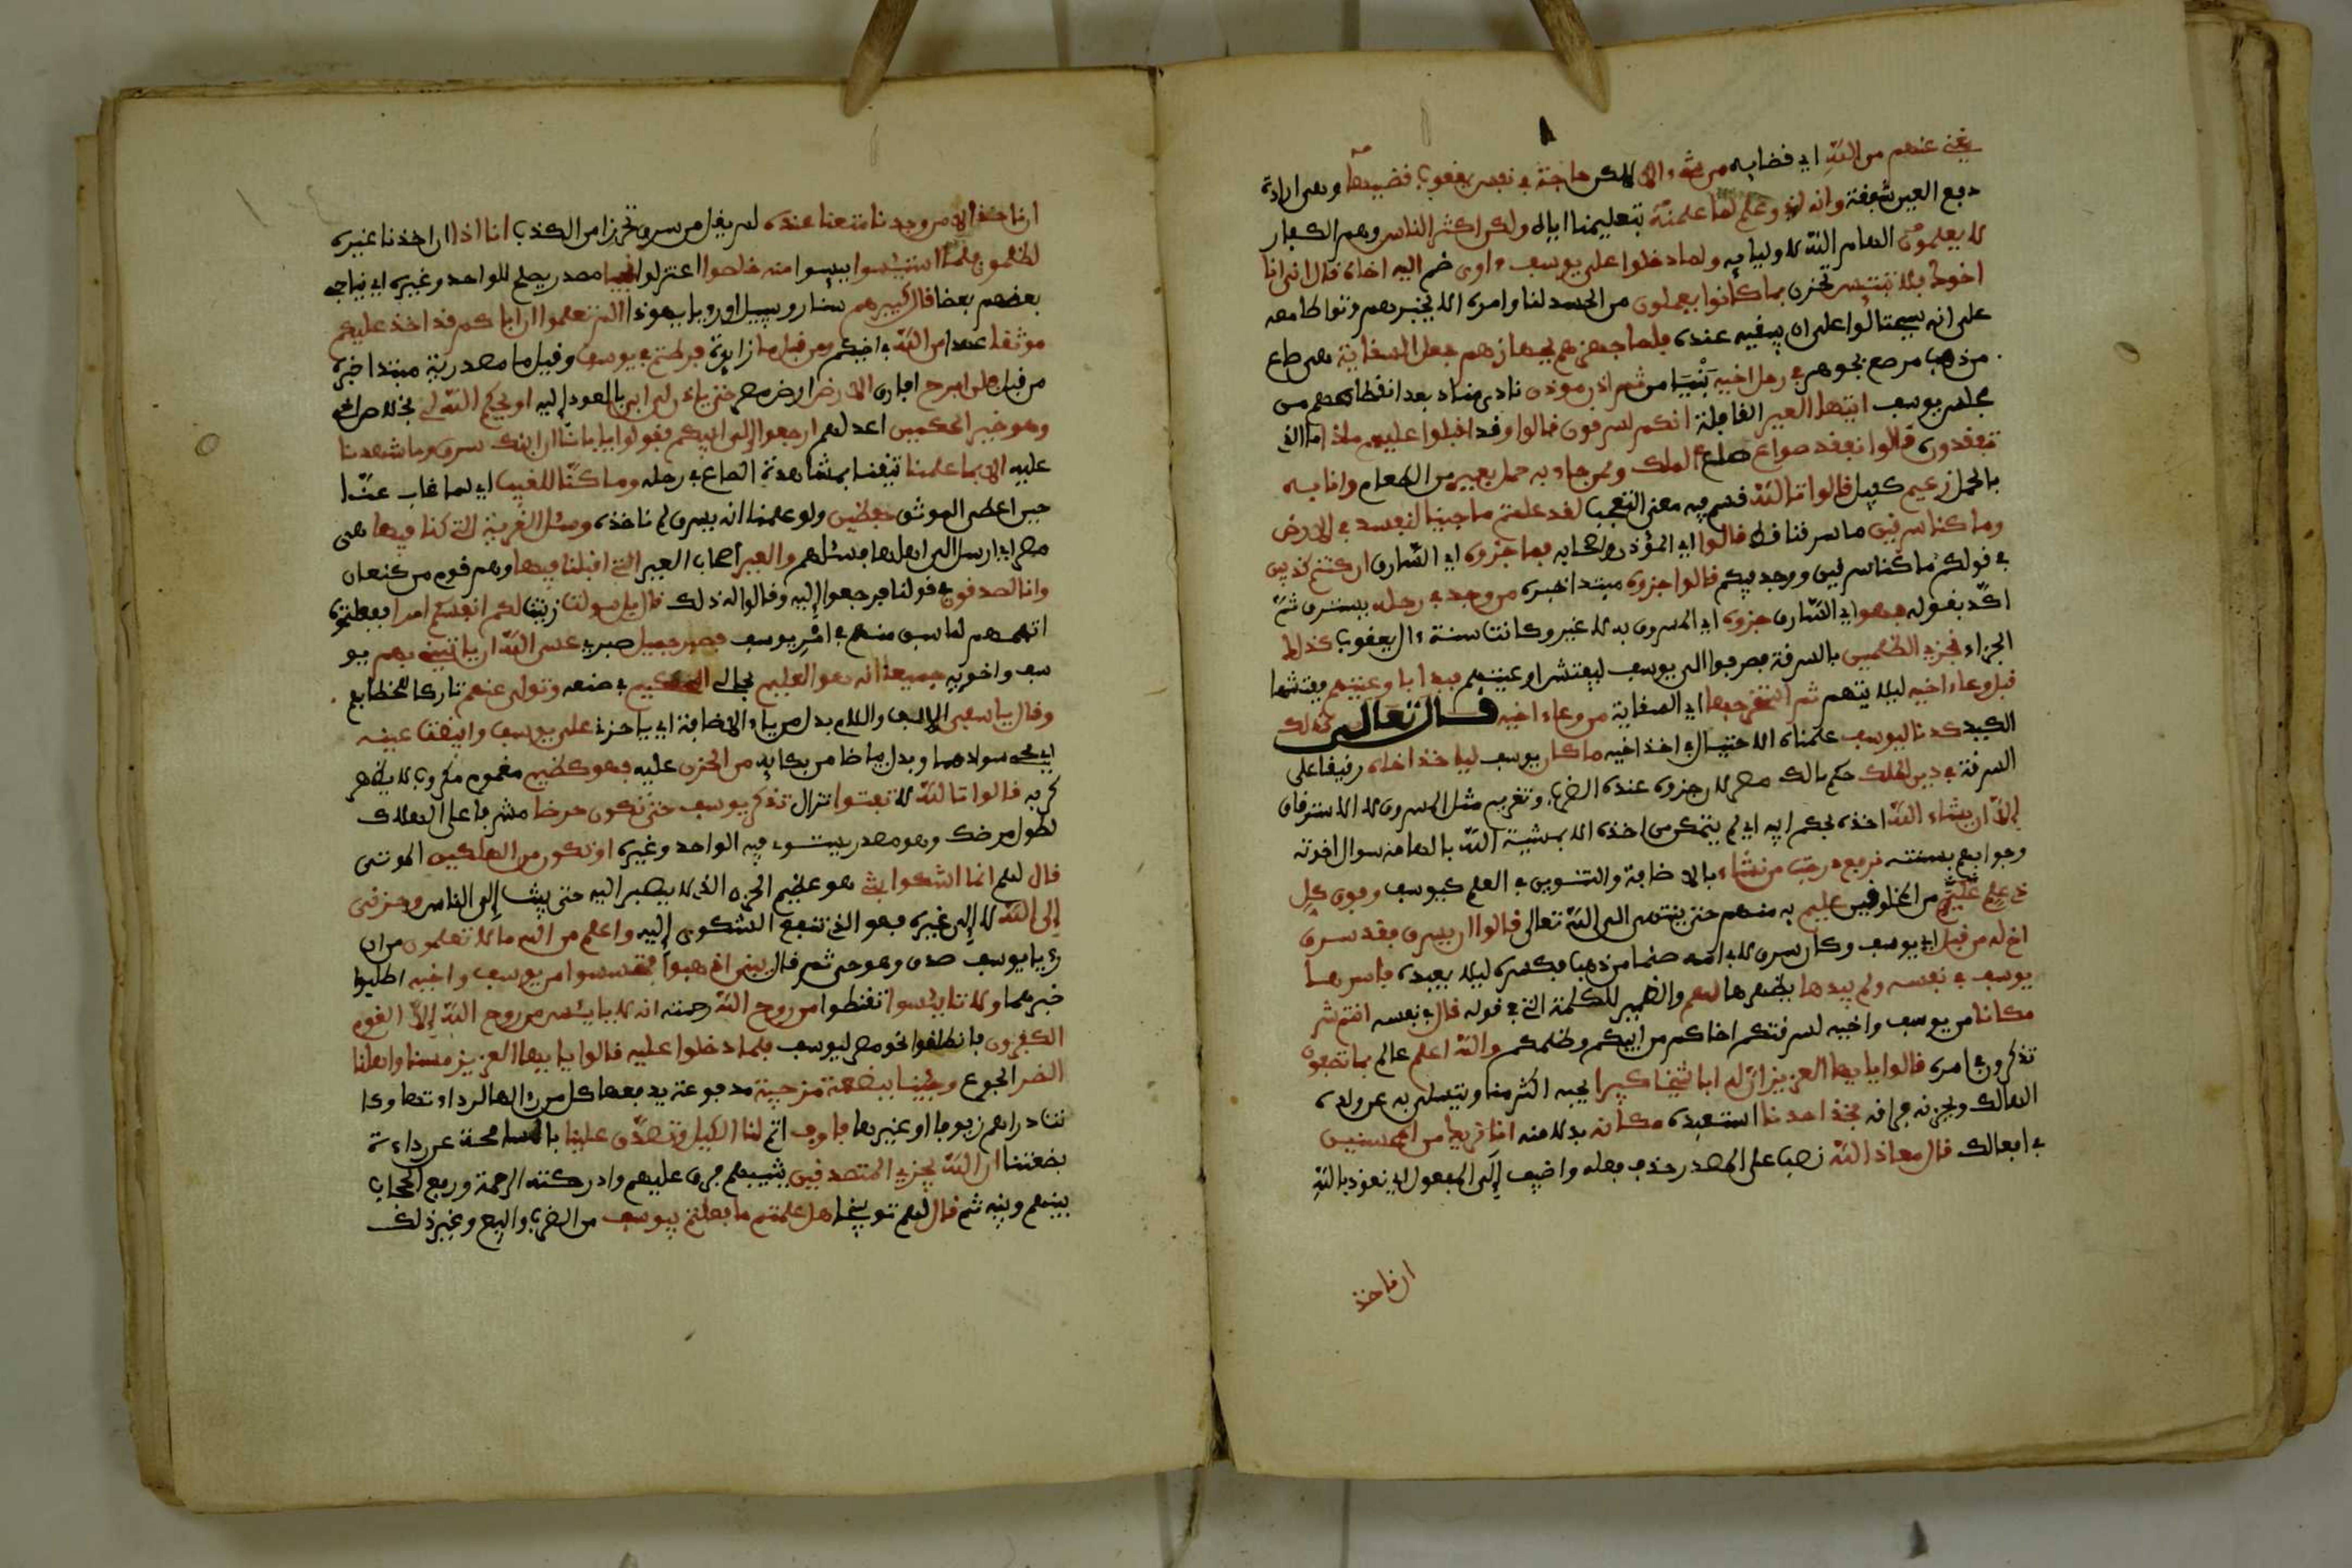 يغني عنهم من الله اي قضايه من شيء الا لكن حاجة في نفس يعقوب قضيها وهي ارادة
دفع العين شفقة وانه لذو علم لما علمنه بتعليمنا اياه ولكن اكثر الناس وهم الكفار
لا يعلمون الهام الله لاوليايه ولما دخلوا على يوسف ءاوى ضم اليه اخاه قال اني انا
اخوك فلا تبتئس تحزن بما كانوا يعملون من الحسد لنا وامره الا يخبرهم وتواطا معه
على انه سيحتال على ان يبقيه عنده فلما جهزهم بجهازهم جعل السقاية هي صاع
من ذهب مرصع بجوهر في رحل اخيه بنيامن ثم اذن موذن نادى مناد بعد انفصالهم من
مجلس يوسف ايتها العير القافلة انكم لسرقون قالوا وقد اقبلوا عليهم ماذا ما الذي
تفقدون قالوا نفقد صواع صاع الملك ولمن جاء به حمل بعير من الطعام وانا به
بالحمل زعيم كفيل قالوا تالله قسم فيه معنى التعجب لقد علمتم ما جينا لنفسد في الارض
وما كنا سرقين ما سرقنا قط قالوا اي المؤذن واصحابه فما جزؤه اي السارق ان كنتم كذبين
في قولكم ما كنا سرقين ووجد فيكم قالوا جزؤه مبتدا خبره من وجد في رحله يسترق ثم
اكد بقوله فهو اي السارق جزؤه اي المسروق به لا غير وكانت سنة ءال يعقوب كذلك
الجزاء نجزي الظلمين بالسرقة فصرفوا الى يوسف ليفتش اوعيتهم فبدا باوعيتهم ففتشها
قبل وعاء اخيه ليلا يتهم ثم استخرجها اي السقاية من وعاء اخيه قال تعالى كذلك
الكيد كدنا ليوسف علمناه الاحتيال في اخذ اخيه ما كان يوسف لياخذ اخاه رقيقا على
السرقة في دين الملك حكم مالك مصر لان جزؤه عنده الضرب وتغريم مثل المسروق لا الاسترقاق
الا ان يشاء الله اخذه بحكم ابيه اي لم يتمكن من اخذه الا بمشيية الله بالهامه سوال اخوته
وجوابهم بسنته نرفع درجت من نشاء بالاضافة والتنوين في العلم كيوسف وفوق كل
ذي علم عليم من المخلوقين عليم به منهم حتى ينتهي الى الله تعالى قالوا ان يسرق فقد سرق
اخ له من قبل اي يوسف وكان سرق لابي امه صنما من ذهب فكسره ليلا يعبده فاسرها
يوسف في نفسه ولم يبدها يظهرها لهم والضمير للكلمة التي في قوله قال في نفسه انتم شر
مكانا من يوسف واخيه لسرقتكم اخاكم من ابيكم وظلمكم والله اعلم عالم بما تصفون
تذكرون في امره قالوا يايها العزيز ان له ابا شيخا كبيرا يحبه اكثر منا ويتسلى به عن ولده
الهالك ويحزنه فراقه فخذ احدنا استعبده مكانه بدلا منه انا نريك من المحسنين
في افعالك قال معاذ الله نصب على المصدر حذف فعله واضيف الى المفعول اي نعوذ بالله
ان ناخذ
ان ناخذ الا من وجدنا متعنا عنده لم يقل من سرق تحرزا من الكذب انا اذا ان اخذنا غيره
لظلمون فلما استيئسوا ييسوا منه خلصوا اعتزلوا نجيا مصدر يصلح للواحد وغيره اي يناجي
بعضهم بعضا قال كبيرهم سنا روبيل او رويا يهوذا الم تعلموا ان اباكم قد اخذ عليكم
موثقا عهدا من الله في اخيكم ومن قبل ما زايدة فرطتم في يوسف وقيل ما مصدرية مبتدا خبره
من قبل فلن ابرح افارق الارض ارض مصر حتى ياذن لي ابي بالعود اليه او يحكم الله لي بخلاص اخي
وهو خير الحكمين اعدلهم ارجعوا الى ابيكم فقولوا يابانا ان ابنك سرق وما شهدنا
عليه الا بما علمنا تيقنا بمشاهدة الصاع في رحله وما كنا للغيب اي لما غاب عنا
حين اعطى الموثق حفظين ولو علمنا انه يسرق لم ناخذه وسئل القرية التي كنا فيها هي
مصر اي ارسل الى اهلها فسئلهم والعير اصحاب العير التي اقبلنا فيها وهم قوم من كنعان
وانا لصدقون في قولنا فرجعوا اليه وقالوا له ذلك قال بل سولت زينت لكم انفسكم امرا ففعلتموه
اتهمهم لما سبق منهم في امر يوسف فصبر جميل صبري عسى الله ان ياتيني بهم بيو
سف واخويه جميعا انه هو العليم بحالي الحكيم في صنعه وتولى عنهم تاركا لخطابهم
وقال ياسفى الالف واللام بدل من ياء الاضافة اي يا حزني على يوسف وابيضت عينه
اي محي سوادهما وبدل بياضا من بكايه من الحزن عليه فهو كظيم مغموم مكروب لا يظهر
كربه قالوا تالله لا تفتوا تزال تذكر يوسف حتى تكون حرضا مشرفا على الهلاك
لطول مرضك وهو مصدر يستوي فيه الواحد وغيره او تكون من الهلكين الموتى
قال لهم انما اشكوا بثي هو عظيم الحزن الذي لا يصبر اليه حتى يبث الى الناس وحزني
الى الله لا الى غيره فهو الذي تنفع الشكوى اليه واعلم من الله ما لا تعلمون من ان
رءيا يوسف صدق وهو حي ثم قال يبني اذهبوا فتحسسوا من يوسف واخيه اطلبوا
خبرهما ولا تايئسوا تقنطوا من روح الله رحمته انه لا يايئس من روح الله الا القوم
الكفرون فانطلقوا نحو مصر ليوسف فلما دخلوا عليه قالوا يايها العزيز مسنا واهلنا
الضر الجوع وجينا ببضعة مزجية مدفوعة يدفعها كل من رءاها لرداءتها وكا
نت دراهم زيوفا او غيرها فاوف اتم لنا الكيل وتصدق علينا بالمسامحة عن رداءة
بضعتنا ان الله يجزي المتصدقين يثيبهم فرق عليهم وادركته الرحمة ورفع الحجاب
بينهم وبينه ثم قال لهم توبيخا هل علمتم ما فعلتم بيوسف من الضرب والبيع وغير ذلك